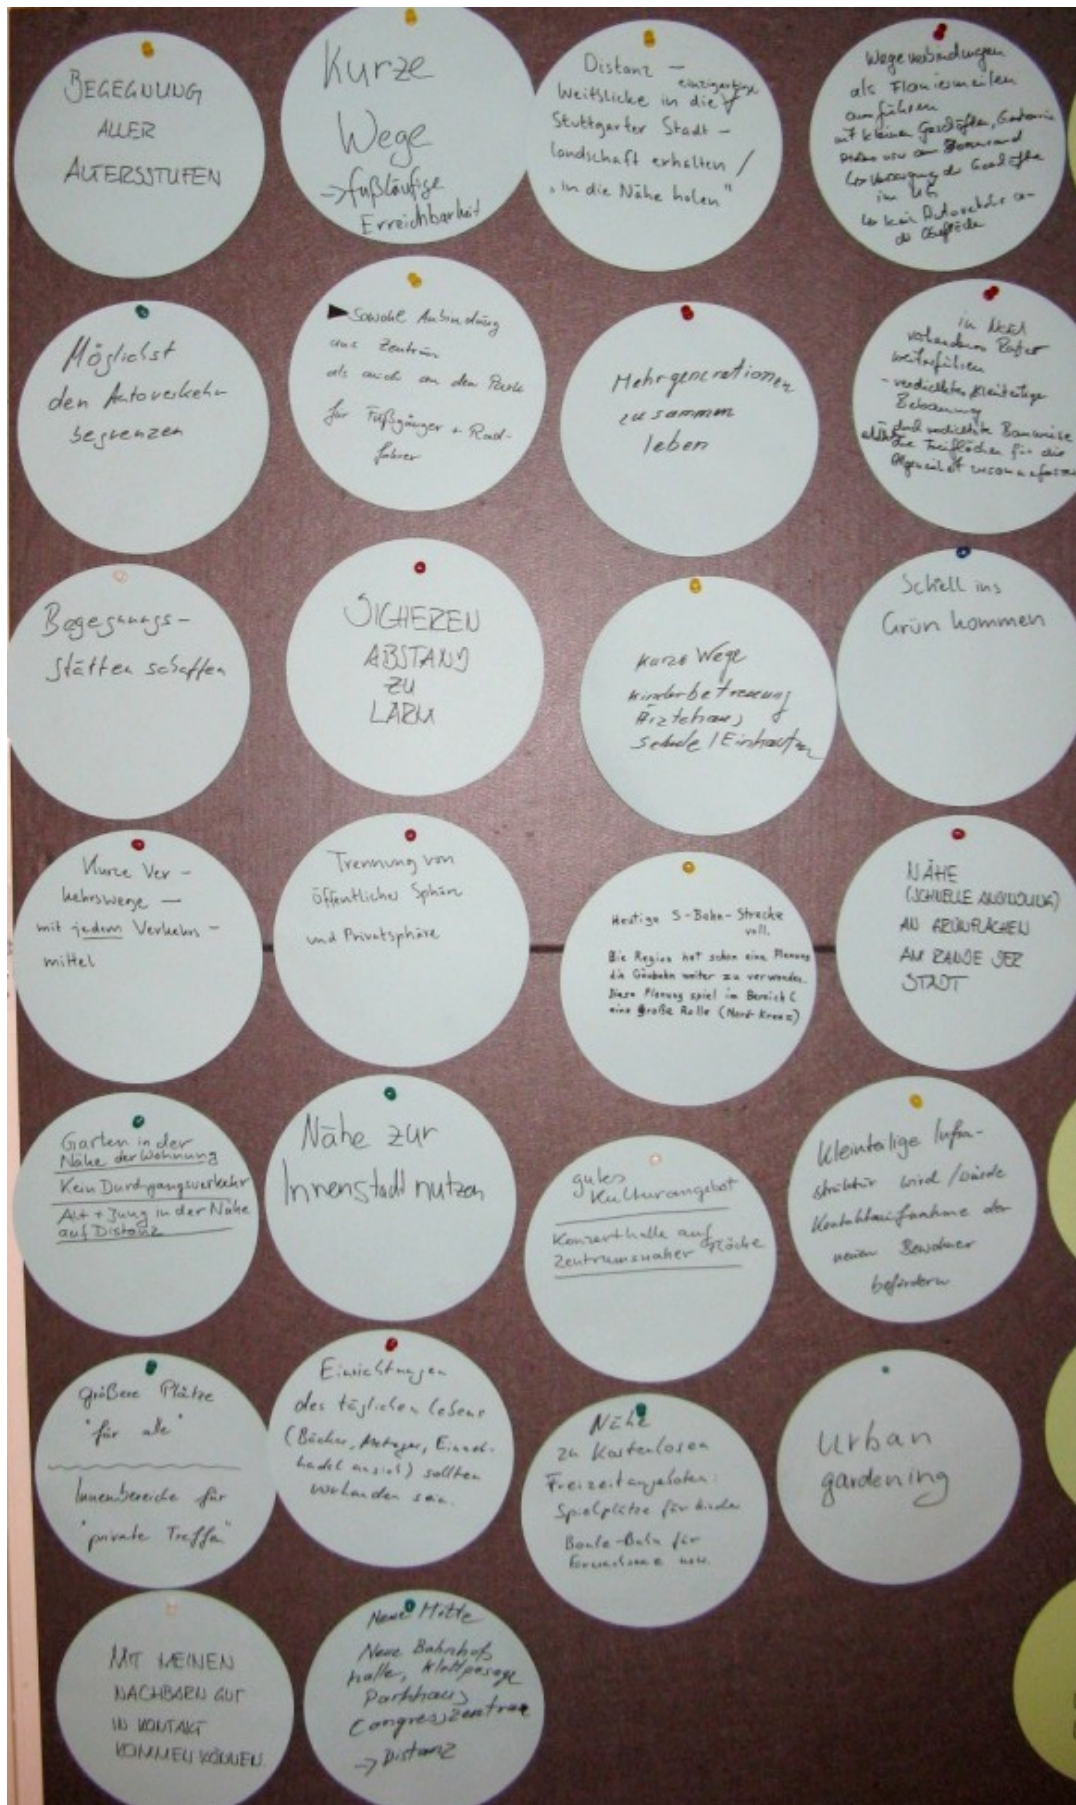 BEGEGNUNG
ALLER
ALTERSSTUFEN
Kurze
Wege
→ fußläufige
Erreichbarkeit
Distanz –
einzigartige
Weitblicke in die
Stuttgarter Stadt –
landschaft erhalten /
"in die Nähe holen"
Wegeverbindungen
als Flaniermeilen
ausführen
mit kleinen Geschäften,
Versorgung der Geschäfte
im UG
kein Autoverkehr an
der Oberfläche
Möglichst
den Autoverkehr
begrenzen
Sowohl Anbindung
ans Zentrum
als auch an den Park
für Fußgänger + Rad-
fahrer
Mehrgenerationen
zusammen
leben
in Nord
vorhandenes Raster
weiterführen
- verdichtete kleinteilige
Bebauung
- durch verdichtete Bauweise
die Freiflächen für die
Begegnungs –
stätten schaffen
SICHEREN
ABSTAND
ZU
LÄRM
Kurze Wege
Kinderbetreuung
Ärztehaus
Schule / Einkaufen
Schell ins
Grün kommen
Kurze Ver –
kehrswege —
mit jedem Verkehrs –
mittel
Trennung von
öffentlicher Sphäre
und Privatsphäre
Heutige S-Bahn-Strecke
voll.
Die Region hat schon eine Planung
die Gäubahn weiter zu verwenden.
Diese Planung spiel im Bereich C
eine große Rolle (Nord-Kreuz)
NÄHE
(SCHNELLE ANBINDUNG)
AN GRÜNFLÄCHEN
AM RANDE DER
STADT
Garten in der
Nähe der Wohnung
Kein Durchgangsverkehr
Alt + Jung in der Nähe
auf Distanz
Nähe zur
Innenstadt nutzen
gutes
Kulturangebot
Konzerthalle auf
zentrumsnaher Fläche
Kleinteilige Infra-
struktur wird / würde
Kontaktaufnahme der
neuen Bewohner
befördern
größere Plätze
"für alle"
Innenbereiche für
"private Treffen"
Einrichtungen
des täglichen Lebens
(Bäcker, Metzger, Einzel-
handel ansich) sollten
vorhanden sein.
Nähe
zu kostenlosen
Freizeitangeboten:
Spielplätze für Kinder
Boule-Bahn für
Erwachsene usw.
Urban
gardening
MIT MEINEN
NACHBARN GUT
IN KONTAKT
KOMMEN KÖNNEN.
Neue Mitte
Neue Bahnhofs
halle, Klettpassage
Parkhaus
Congresszentrum
→ Distanz